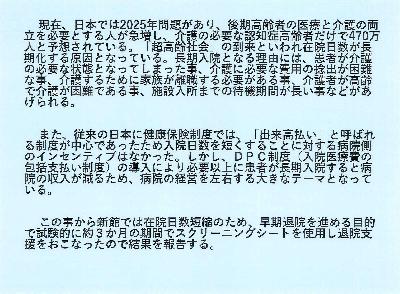 現在、日本では2025年問題があり、後期高齢者の医療と介護の両
立を必要とする人が急増し、介護の必要な認知症高齢者だけで470万
人と予想されている。「超高齢社会」の到来といわれ在院日数が長
期化する原因となっている。長期入院となる理由には、患者が介護
の必要な状態となってしまった事、介護に必要な費用の捻出が困難
な事、介護するために家族が離職する必要がある事、介護者が高齢
で介護が困難である事、施設入所までの待機期間が長い事などがあ
げられる。
また、従来の日本に健康保険制度では、「出来高払い」と呼ばれ
る制度が中心であったため入院日数を短くすることに対する病院側
のインセンティブはなかった。しかし、DPC制度（入院医療費の
包括支払い制度）の導入により必要以上に患者が長期入院すると病
院の収入が減るため、病院の経営を左右する大きなテーマとなって
いる。
この事から新館では在院日数短縮のため、早期退院を進める目的
で試験的に約３か月の期間でスクリーニングシートを使用し退院支
援をおこなったので結果を報告する。